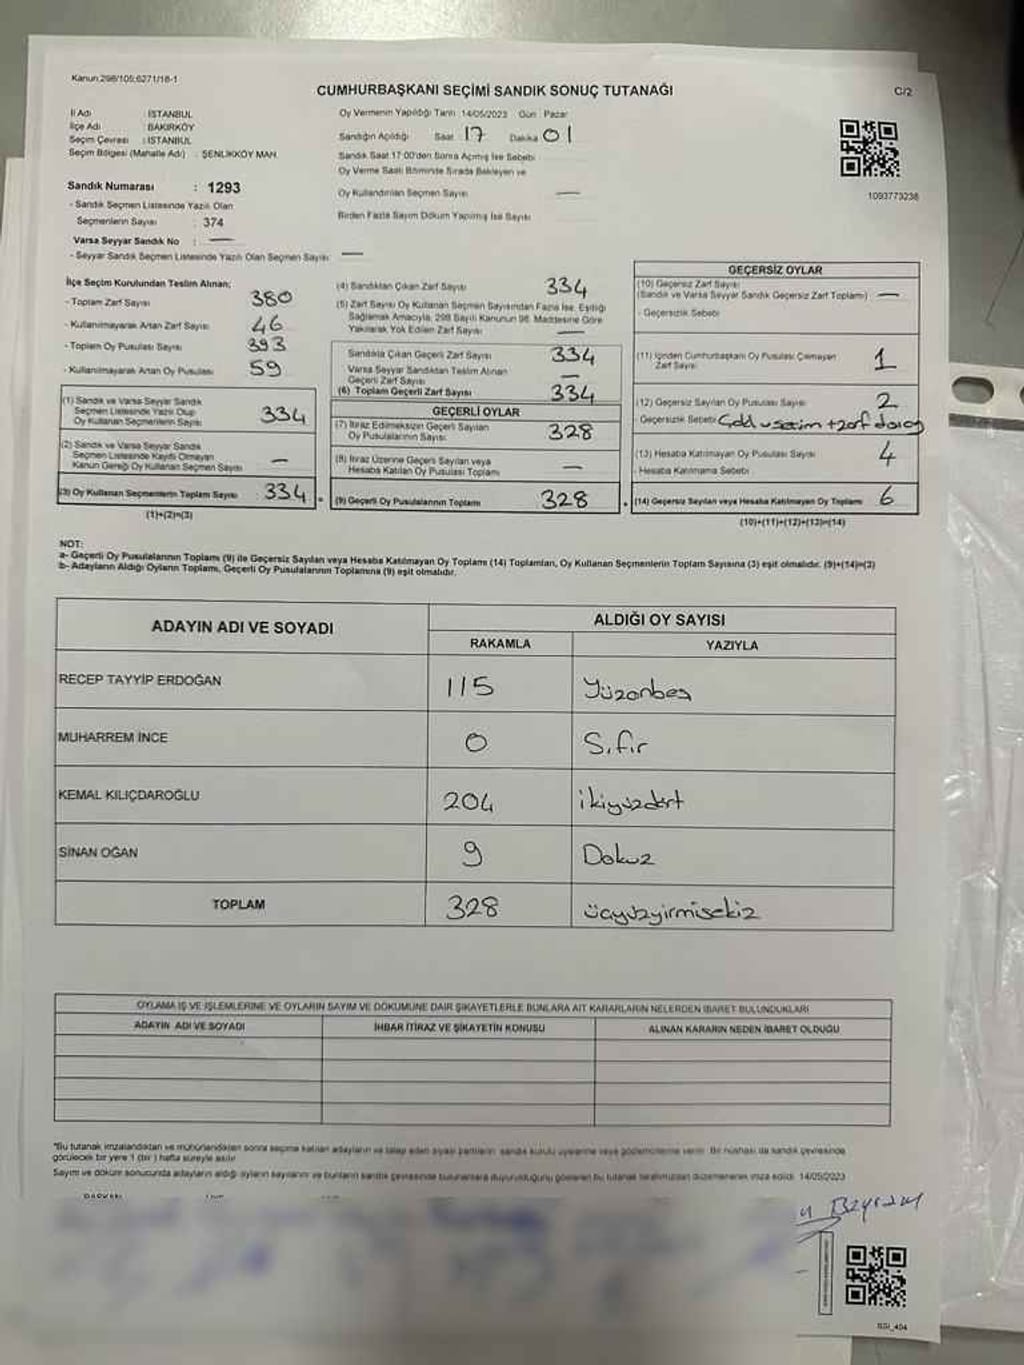 Kanun:298/105;6271/18-1
CUMHURBAŞKANI SEÇİMİ SANDIK SONUÇ TUTANAĞI
C/2
İl Adı : İSTANBUL
İlçe Adı : BAKIRKÖY
Seçim Çevresi : İSTANBUL
Seçim Bölgesi (Mahalle Adı) : ŞENLİKKÖY MAH.
Oy Vermenin Yapıldığı Tarih 14/05/2023 Gün : Pazar
Sandığın Açıldığı Saat 17 Dakika 01
Sandık Saat 17:00'den Sonra Açılmış İse Sebebi
Oy Verme Saati Bitiminde Sırada Bekleyen ve
Oy Kullandırılan Seçmen Sayısı —
Birden Fazla Sayım Döküm Yapılmış İse Sayısı
1093773238
Sandık Numarası : 1293
- Sandık Seçmen Listesinde Yazılı Olan
Seçmenlerin Sayısı : 374
Varsa Seyyar Sandık No : —
- Seyyar Sandık Seçmen Listesinde Yazılı Olan Seçmen Sayısı : —
İlçe Seçim Kurulundan Teslim Alınan;
- Toplam Zarf Sayısı 380
- Kullanılmayarak Artan Zarf Sayısı 46
- Toplam Oy Pusulası Sayısı 393
- Kullanılmayarak Artan Oy Pusulası 59
(1) Sandık ve Varsa Seyyar Sandık
Seçmen Listesinde Yazılı Olup
Oy Kullanan Seçmenlerin Sayısı 334
(2) Sandık ve Varsa Seyyar Sandık
Seçmen Listesinde Kaydı Olmayan
Kanun Gereği Oy Kullanan Seçmen Sayısı —
(3) Oy Kullanan Seçmenlerin Toplam Sayısı : 334
(1)+(2)=(3)
(4) Sandıktan Çıkan Zarf Sayısı 334
(5) Zarf Sayısı Oy Kullanan Seçmen Sayısından Fazla İse, Eşitliği
Sağlamak Amacıyla, 298 Sayılı Kanunun 98. Maddesine Göre
Yakılarak Yok Edilen Zarf Sayısı —
Sandıkta Çıkan Geçerli Zarf Sayısı 334
Varsa Seyyar Sandıktan Teslim Alınan
Geçerli Zarf Sayısı —
(6) Toplam Geçerli Zarf Sayısı 334
GEÇERLİ OYLAR
(7) İtiraz Edilmeksizin Geçerli Sayılan
Oy Pusulalarının Sayısı 328
(8) İtiraz Üzerine Geçerli Sayılan veya
Hesaba Katılan Oy Pusulası Toplamı —
(9) Geçerli Oy Pusulalarının Toplamı 328
GEÇERSİZ OYLAR
(10) Geçersiz Zarf Sayısı
(Sandık ve Varsa Seyyar Sandık Geçersiz Zarf Toplamı) —
- Geçersizlik Sebebi
(11) İçinden Cumhurbaşkanı Oy Pusulası Çıkmayan
Zarf Sayısı 1
(12) Geçersiz Sayılan Oy Pusulası Sayısı 2
- Geçersizlik Sebebi
(13) Hesaba Katılmayan Oy Pusulası Sayısı 4
- Hesaba Katılmama Sebebi
(14) Geçersiz Sayılan veya Hesaba Katılmayan Oy Toplamı 6
(10)+(11)+(12)+(13)=(14)
NOT:
a- Geçerli Oy Pusulalarının Toplamı (9) ile Geçersiz Sayılan veya Hesaba Katılmayan Oy Toplamı (14) Toplamları, Oy Kullanan Seçmenlerin Toplam Sayısına (3) eşit olmalıdır. (9)+(14)=(3)
b- Adayların Aldığı Oyların Toplamı, Geçerli Oy Pusulalarının Toplamına (9) eşit olmalıdır.
ADAYIN ADI VE SOYADI
ALDIĞI OY SAYISI
RAKAMLA YAZIYLA
RECEP TAYYİP ERDOĞAN 115 Yüzonbeş
MUHARREM İNCE 0 Sıfır
KEMAL KILIÇDAROĞLU 204 ikiyüzdört
SİNAN OĞAN 9 Dokuz
TOPLAM 328 üçyüzyirmisekiz
OYLAMA İŞ VE İŞLEMLERİNE VE OYLARIN SAYIM VE DÖKÜMÜNE DAİR ŞİKAYETLERLE BUNLARA AİT KARARLARIN NELERDEN İBARET BULUNDUKLARI
ADAYIN ADI VE SOYADI İHBAR İTİRAZ VE ŞİKAYETİN KONUSU ALINAN KARARIN NEDEN İBARET OLDUĞU
*Bu tutanak imzalandıktan ve mühürlendikten sonra seçime katılan adayların ve talep eden siyasi partilerin sandık kurulu üyelerine veya gözlemcilerine verilir. Bir nüshası da sandık çevresinde
görülecek bir yere 1 (bir) hafta süreyle asılır.
Sayım ve döküm sonucunda adayların aldığı oyların sayılarını ve bunların sandık çevresinde bulunanlara duyurulduğunu gösteren bu tutanak tarafımızdan düzenlenerek imza edildi. 14/05/2023
Bayram